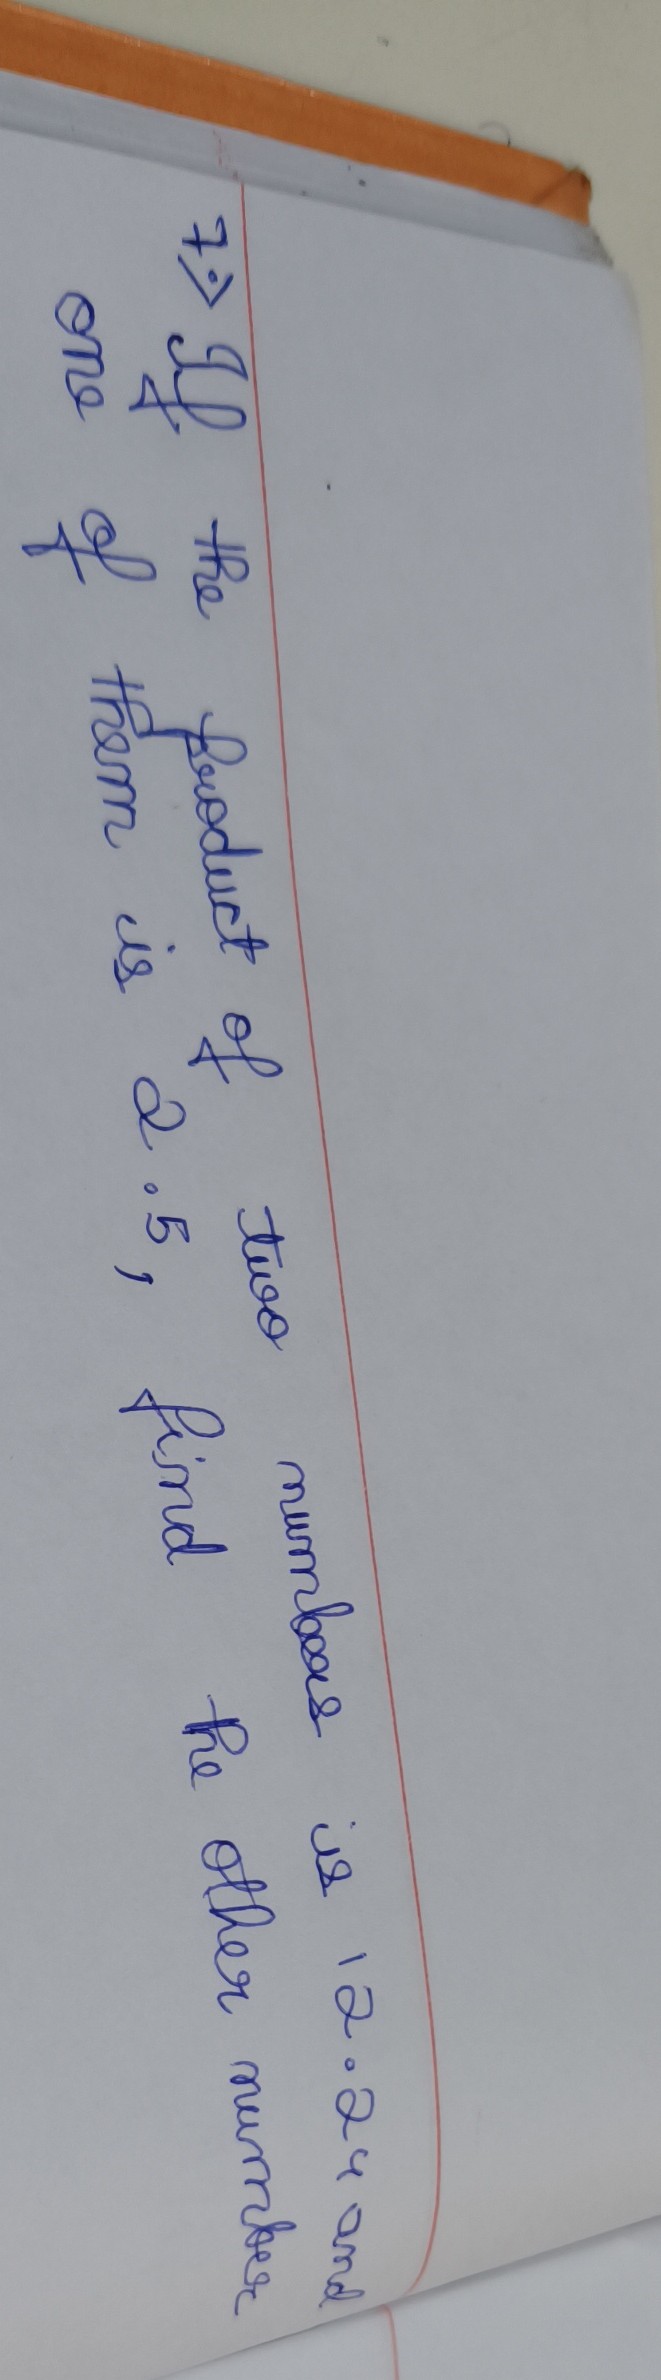 7.> If the product of two numbers is 12.24 and
one of them is 2.5, find the other number